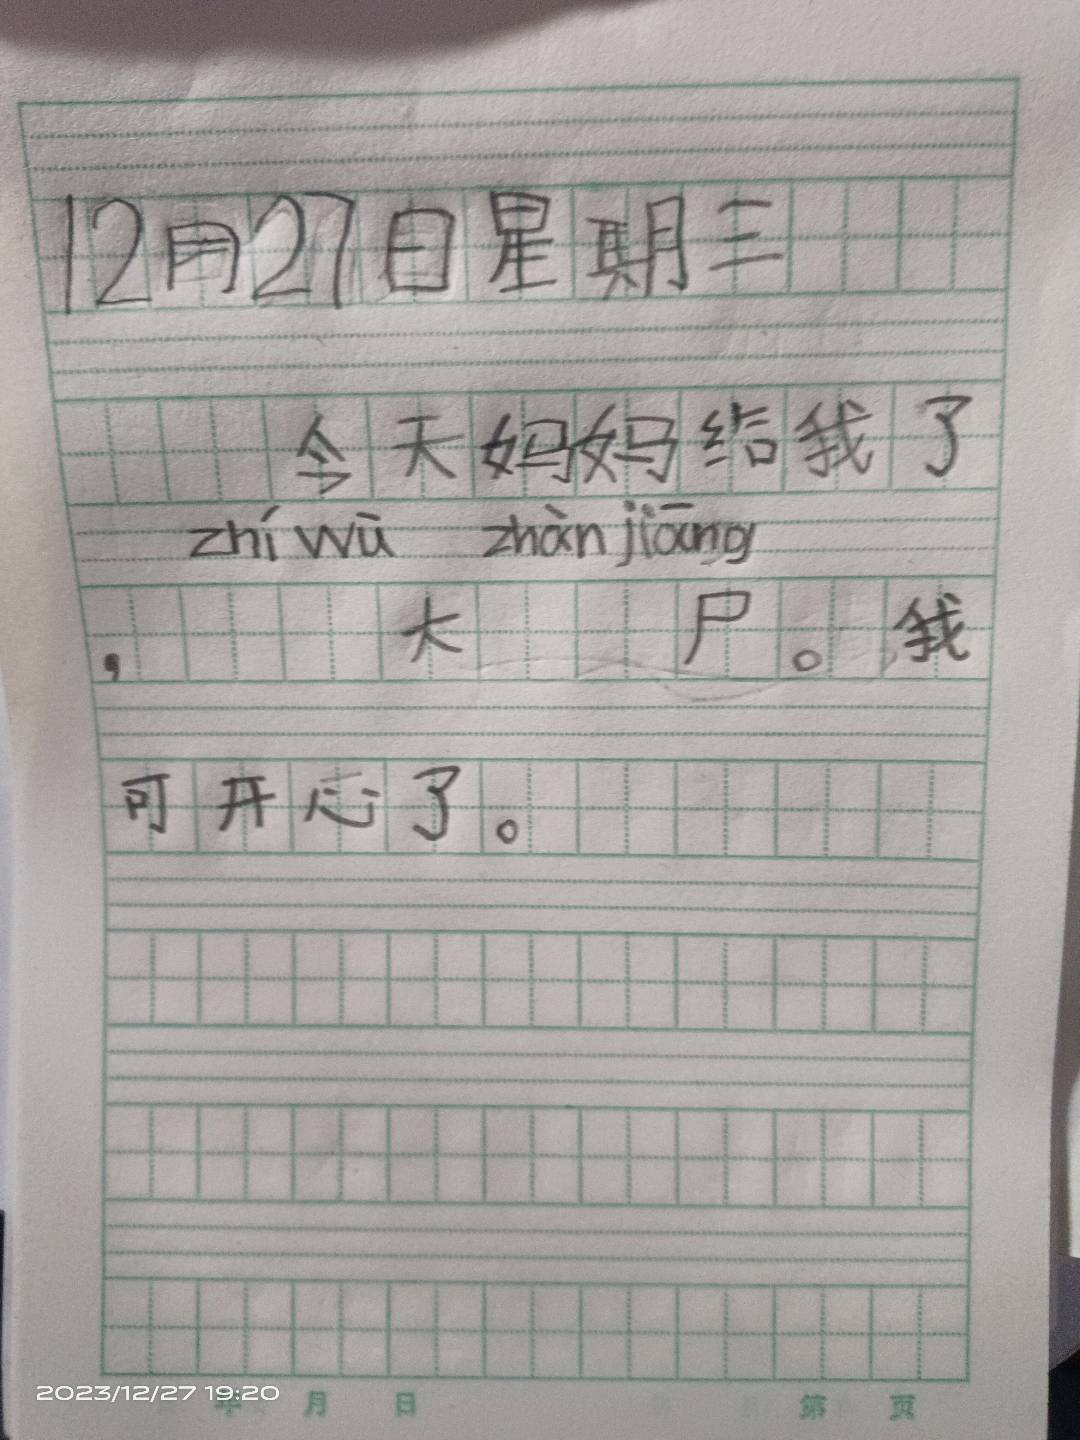 12月27日星期三
今天妈妈给我了
zhí wù zhàn jiāng
, 大 尸。我
可开心了。
2023/12/27 19:20
年 月 日 第 页